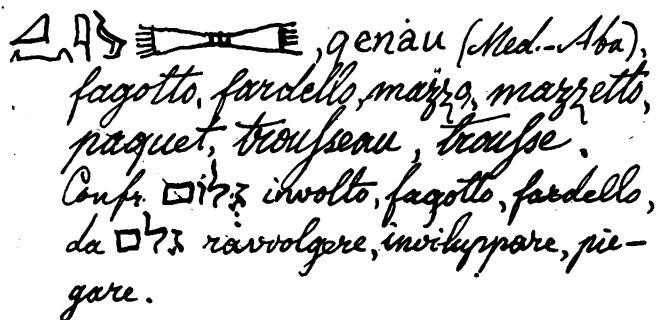 , genȧu (Med.-Aba),
fagotto, fardello, mazzo, mazzetto,
paquet, trousseau, trousse.
Confr. גלום involto, fagotto, fardello,
da גלם ravvolgere, inviluppare, pie-
gare.